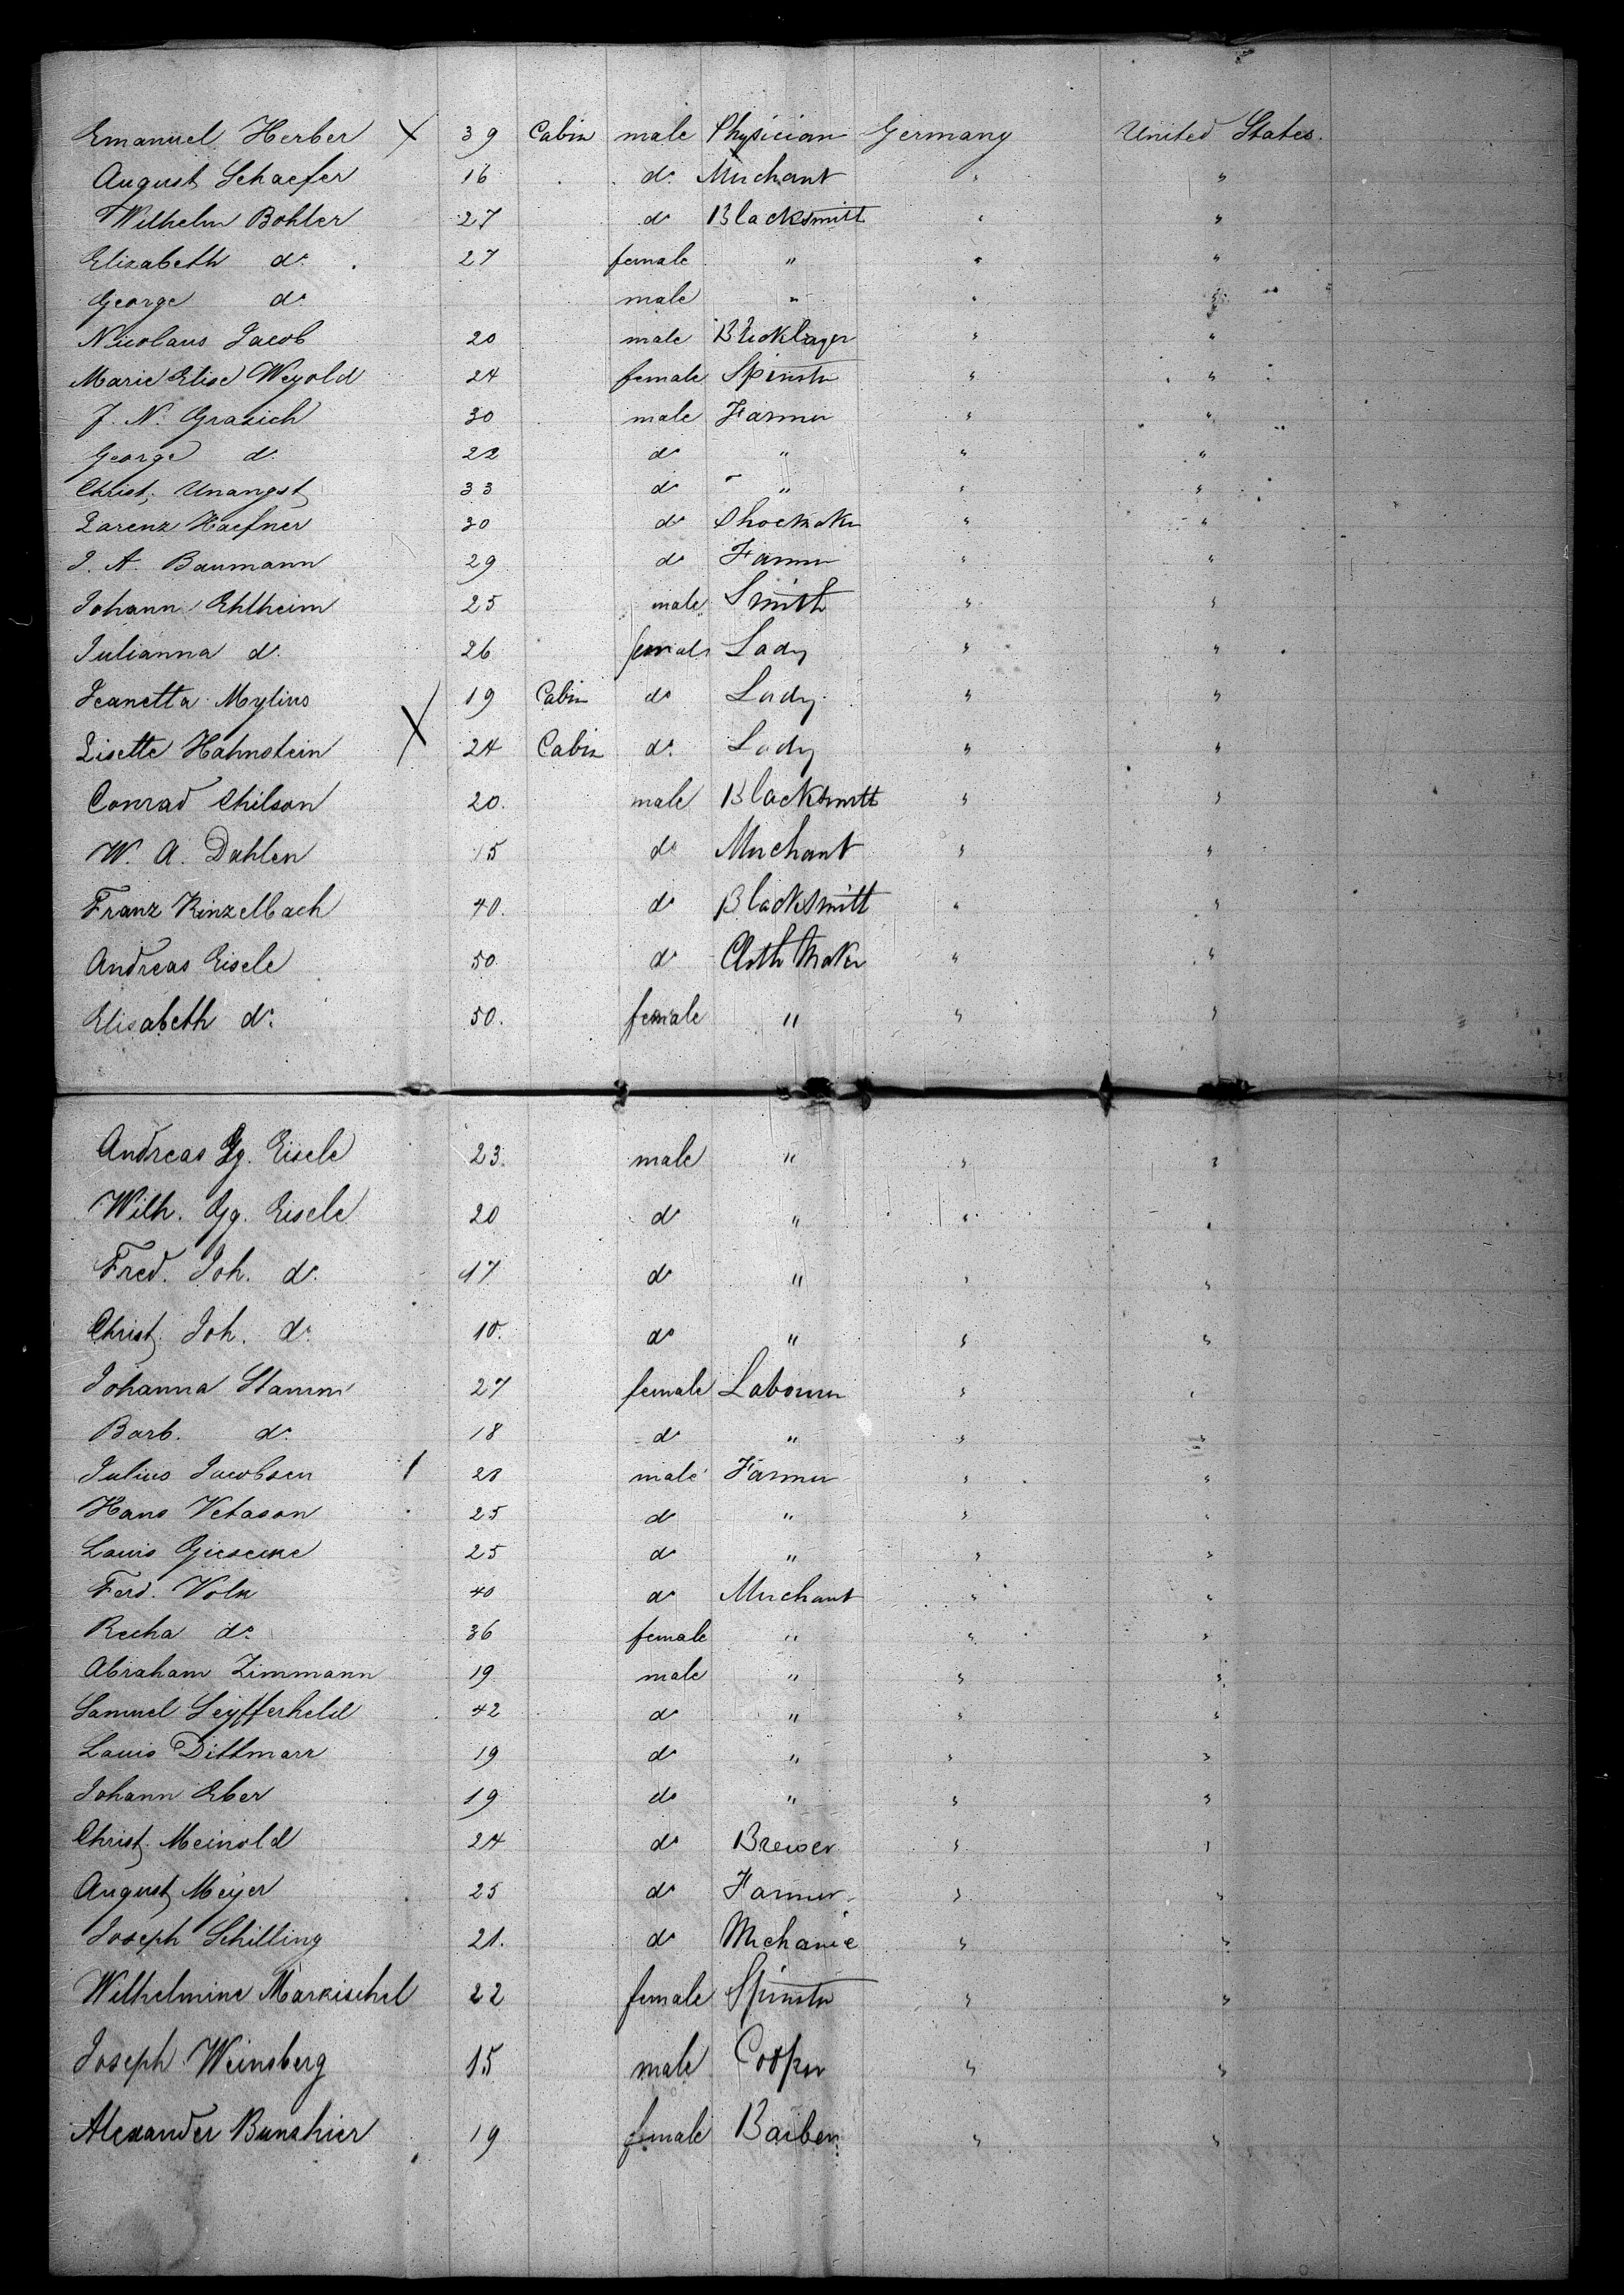 Emanuel Herber X 39 Cabin male Physician Germany United States.
August Schaefer 16 do. Merchant " "
Wilhelm Bohler 27 do Blacksmith " "
Elizabeth do. 27 female " " "
George do. male " " "
Nicolaus Jacob 20 male Bricklayer " "
Marie Elise Weyold 24 female Spinster " "
J. N. Grasich 30 male Farmer " "
George do. 22 do " " "
Christ. Unangst 33 do " " "
Lorenz Haefner 30 do Shoemaker " "
J. A. Baumann 29 do Farmer " "
Johann Ehlheim 25 male Smith " "
Julianna do. 26 female Lady " "
Jeanetta Mylius 19 Cabin do Lady " "
Lisette Hahnstein X 24 Cabin do. Lady " "
Conrad Chilson 20. male Blacksmith " "
W. A. Dahlen 15 do Merchant " "
Franz Kinzelbach 40. do Blacksmith " "
Andreas Eisele 50. do Cloth Maker " "
Elisabeth do. 50. female " " "
Andreas Gg. Eisele 23. male " " "
Wilh. Gg. Eisele 20 do " " "
Fred. Joh. do. 17 do " " "
Christ. Joh. do. 10. do " " "
Johanna Stamm 27 female Labourer " "
Barb. do. 18 do " " "
Julius Jacobsen 28 male Farmer " "
Hans Vetason 25 do " " "
Louis Giesecke 25 do " " "
Ferd. Volk 40 do Merchant " "
Recha do. 36 female " " "
Abraham Zimmann 19 male " " "
Samuel Seyfferheld 42 do " " "
Louis Dittmarr 19 do " " "
Johann Eber 19 do " " "
Christ. Meinold 24 do Brewer " "
August Meyer 25 do Farmer " "
Joseph Schilling 21. do Mechanic " "
Wilhelmine Markischel 22 female Spinster " "
Joseph Weinsberg 15 male Cooper " "
Alexander Bunshier 19 female Barber " "